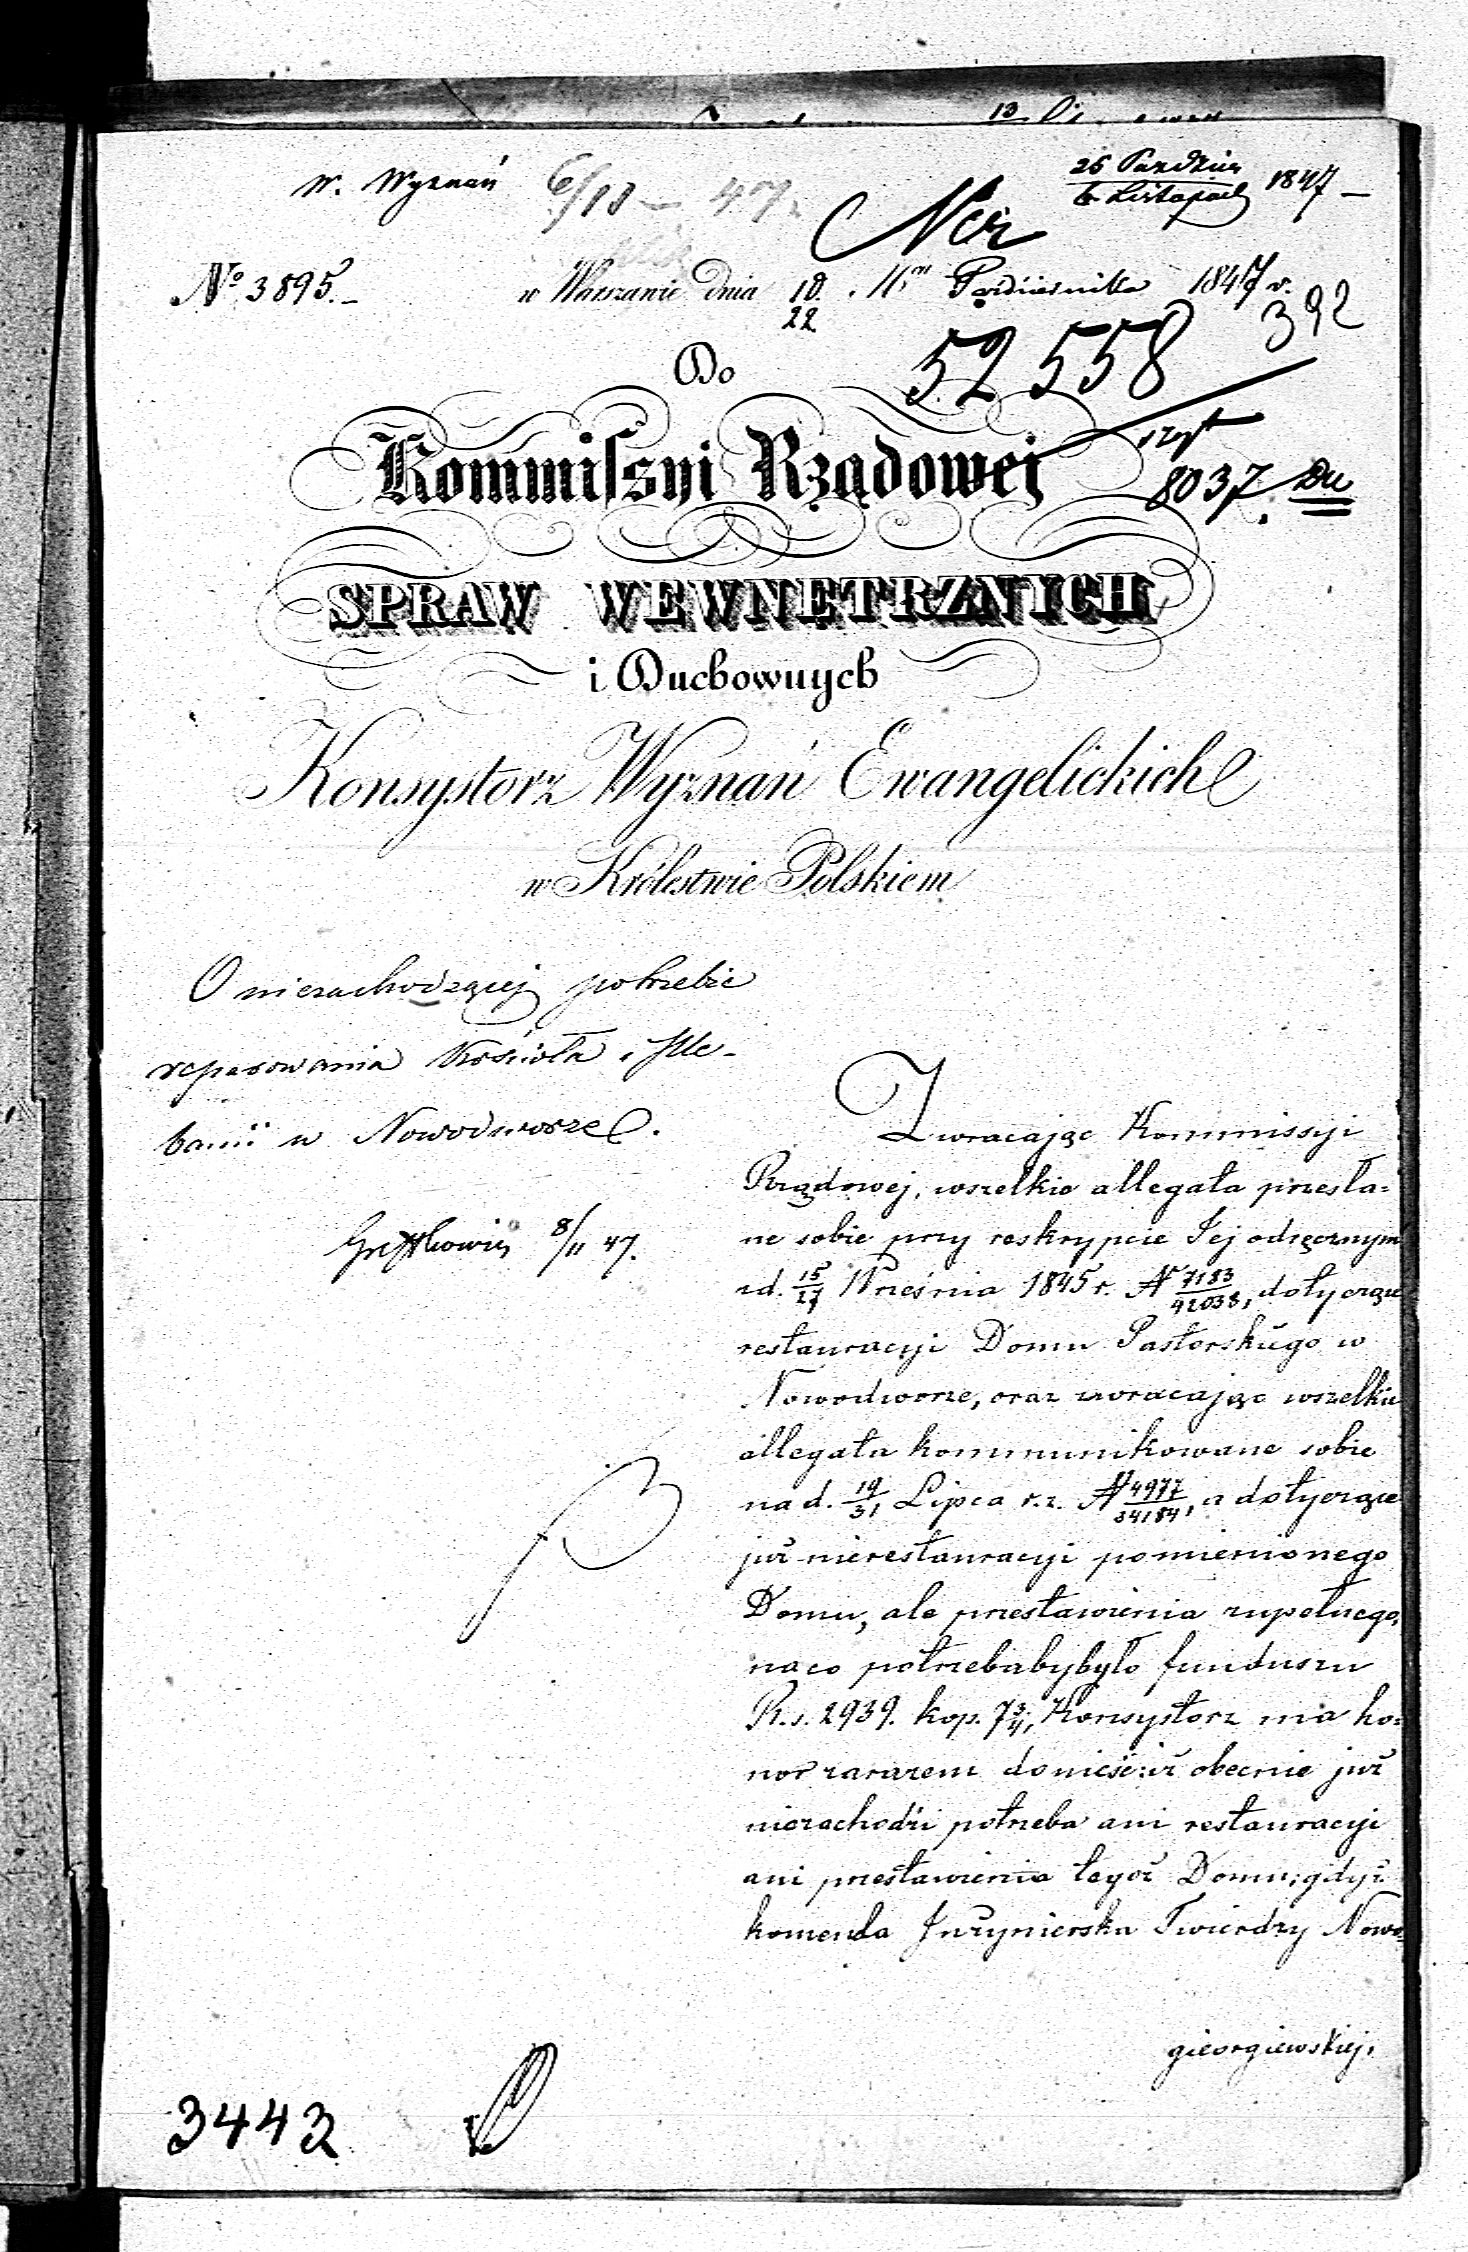 W. Wyznań 6/11 47
25 Paździer
6 Listopad 1847
Ner
No 3895.
w Warszawie dnia 10. 22 Października 1847 r.
392
52558
Do
8037 Du
Kommissyi Rządowej
SPRAW WEWNĘTRZNYCH
i Duchownych
Konsystorz Wyznań Ewangelickich
w Królestwie Polskiem
O niezachodzącej potrzebie
reparowania Kościoła i Ple-
banii w Nowodworze.
8/11 47.
Zwracając Kommissyi
Rządowej, wszelkie allegata przesła-
ne sobie przy reskrypcie Jej odręcznym
z d. 15/27 Września 1845 r. N 7183/42038, dotyczące
restauracyi Domu Pastorskiego w
Nowodworze, oraz zwracając wszelkie
allegata kommunikowane sobie
na d. 19/31 Lipca r.z. N 4977/34184, a dotyczące
już nierestauracyi pomienionego
Domu, ale przestawienia zupełnego,
na co potrzebabybyło funduszu
R.s. 2939. kop. 7 3/4, Konsystorz ma ho-
nor zarazem donieść: iż obecnie już
niezachodzi potrzeba ani restauracyi
ani przestawienia tegoż Domu; gdyż
komenda Inżynierska Twierdzy Nowo-
gieorgiewskiej,
3443